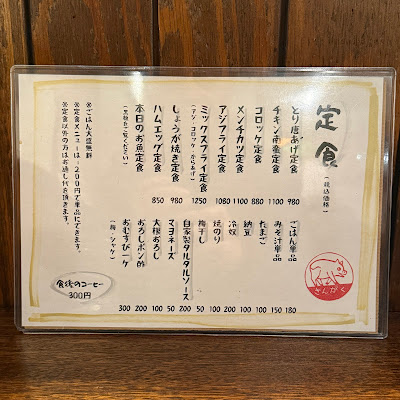 定食
(税込価格)
とり唐あげ定食 980
チキン南蛮定食 1100
コロッケ定食 880
メンチカツ定食 1100
アジフライ定食 1080
ミックスフライ定食 1250
(アジ・コロッケ・からあげ)
しょうが焼き定食 980
ハムエッグ定食 850
本日のお魚定食
(黒板をご覧ください)
ごはん単品 180
みそ汁単品 150
たまご 100
納豆 100
冷奴 200
焼のり 100
梅干し 50
自家製タルタルソース 200
マヨネーズ 50
大根おろし 100
おろしポン酢 200
おむすび一ケ 300
(梅・シャケ)
※ごはん大盛無料
※定食メニューは-200円で単品にできます。
※定食以外の方はお通し代を頂きます。
食後のコーヒー
300円